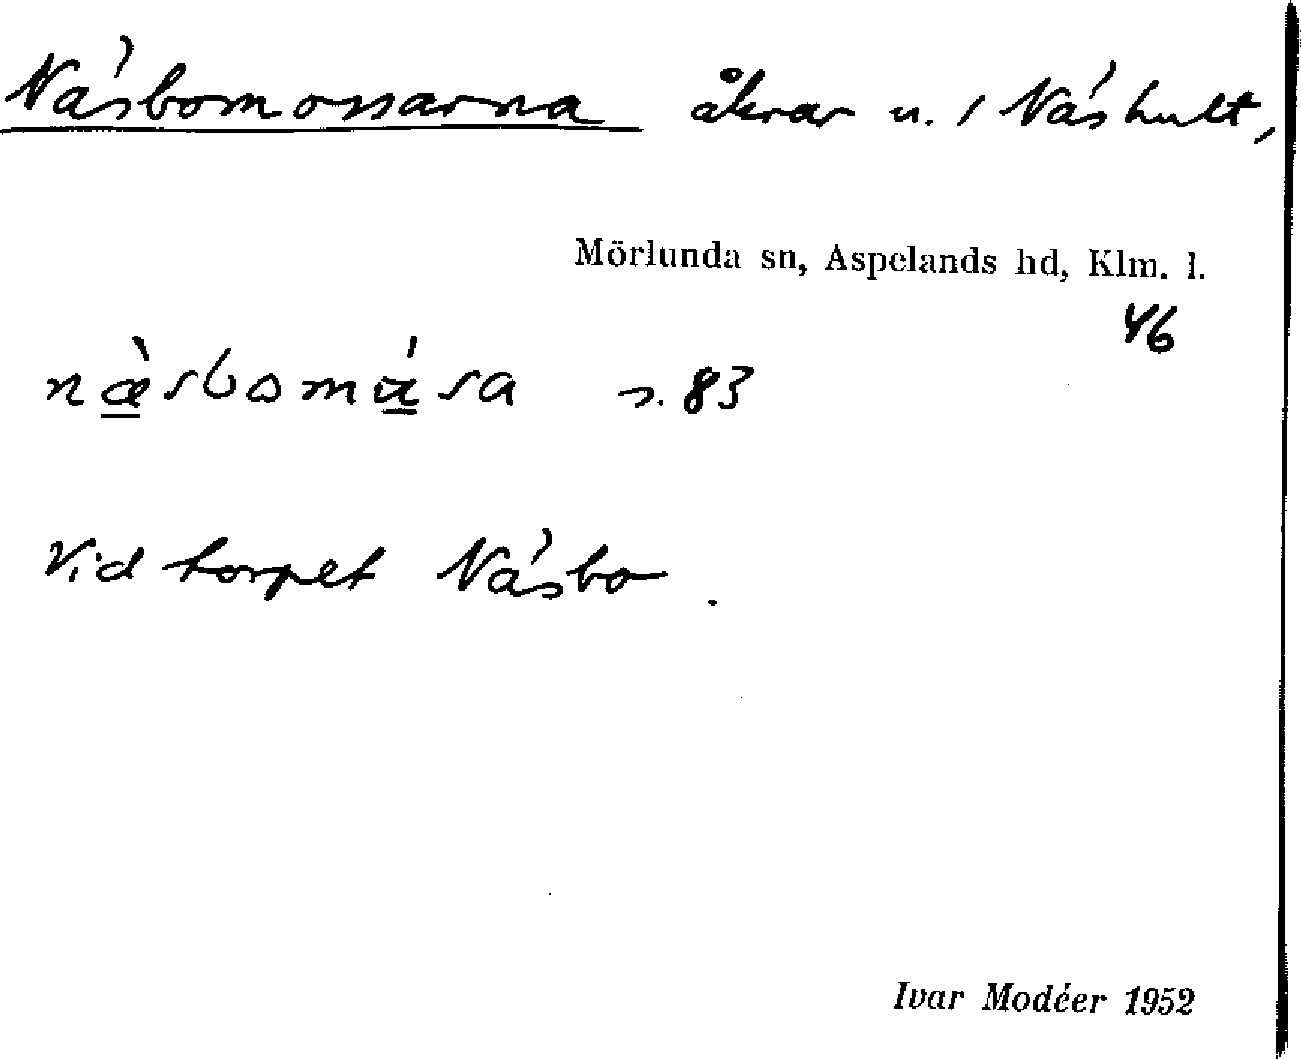 Näsbomossarna åkrar u. / Näshult,
Mörlunda sn, Aspelands hd, Klm. l.
46
s. 83
Vid torpet Näsbo.
Ivar Modéer 1952